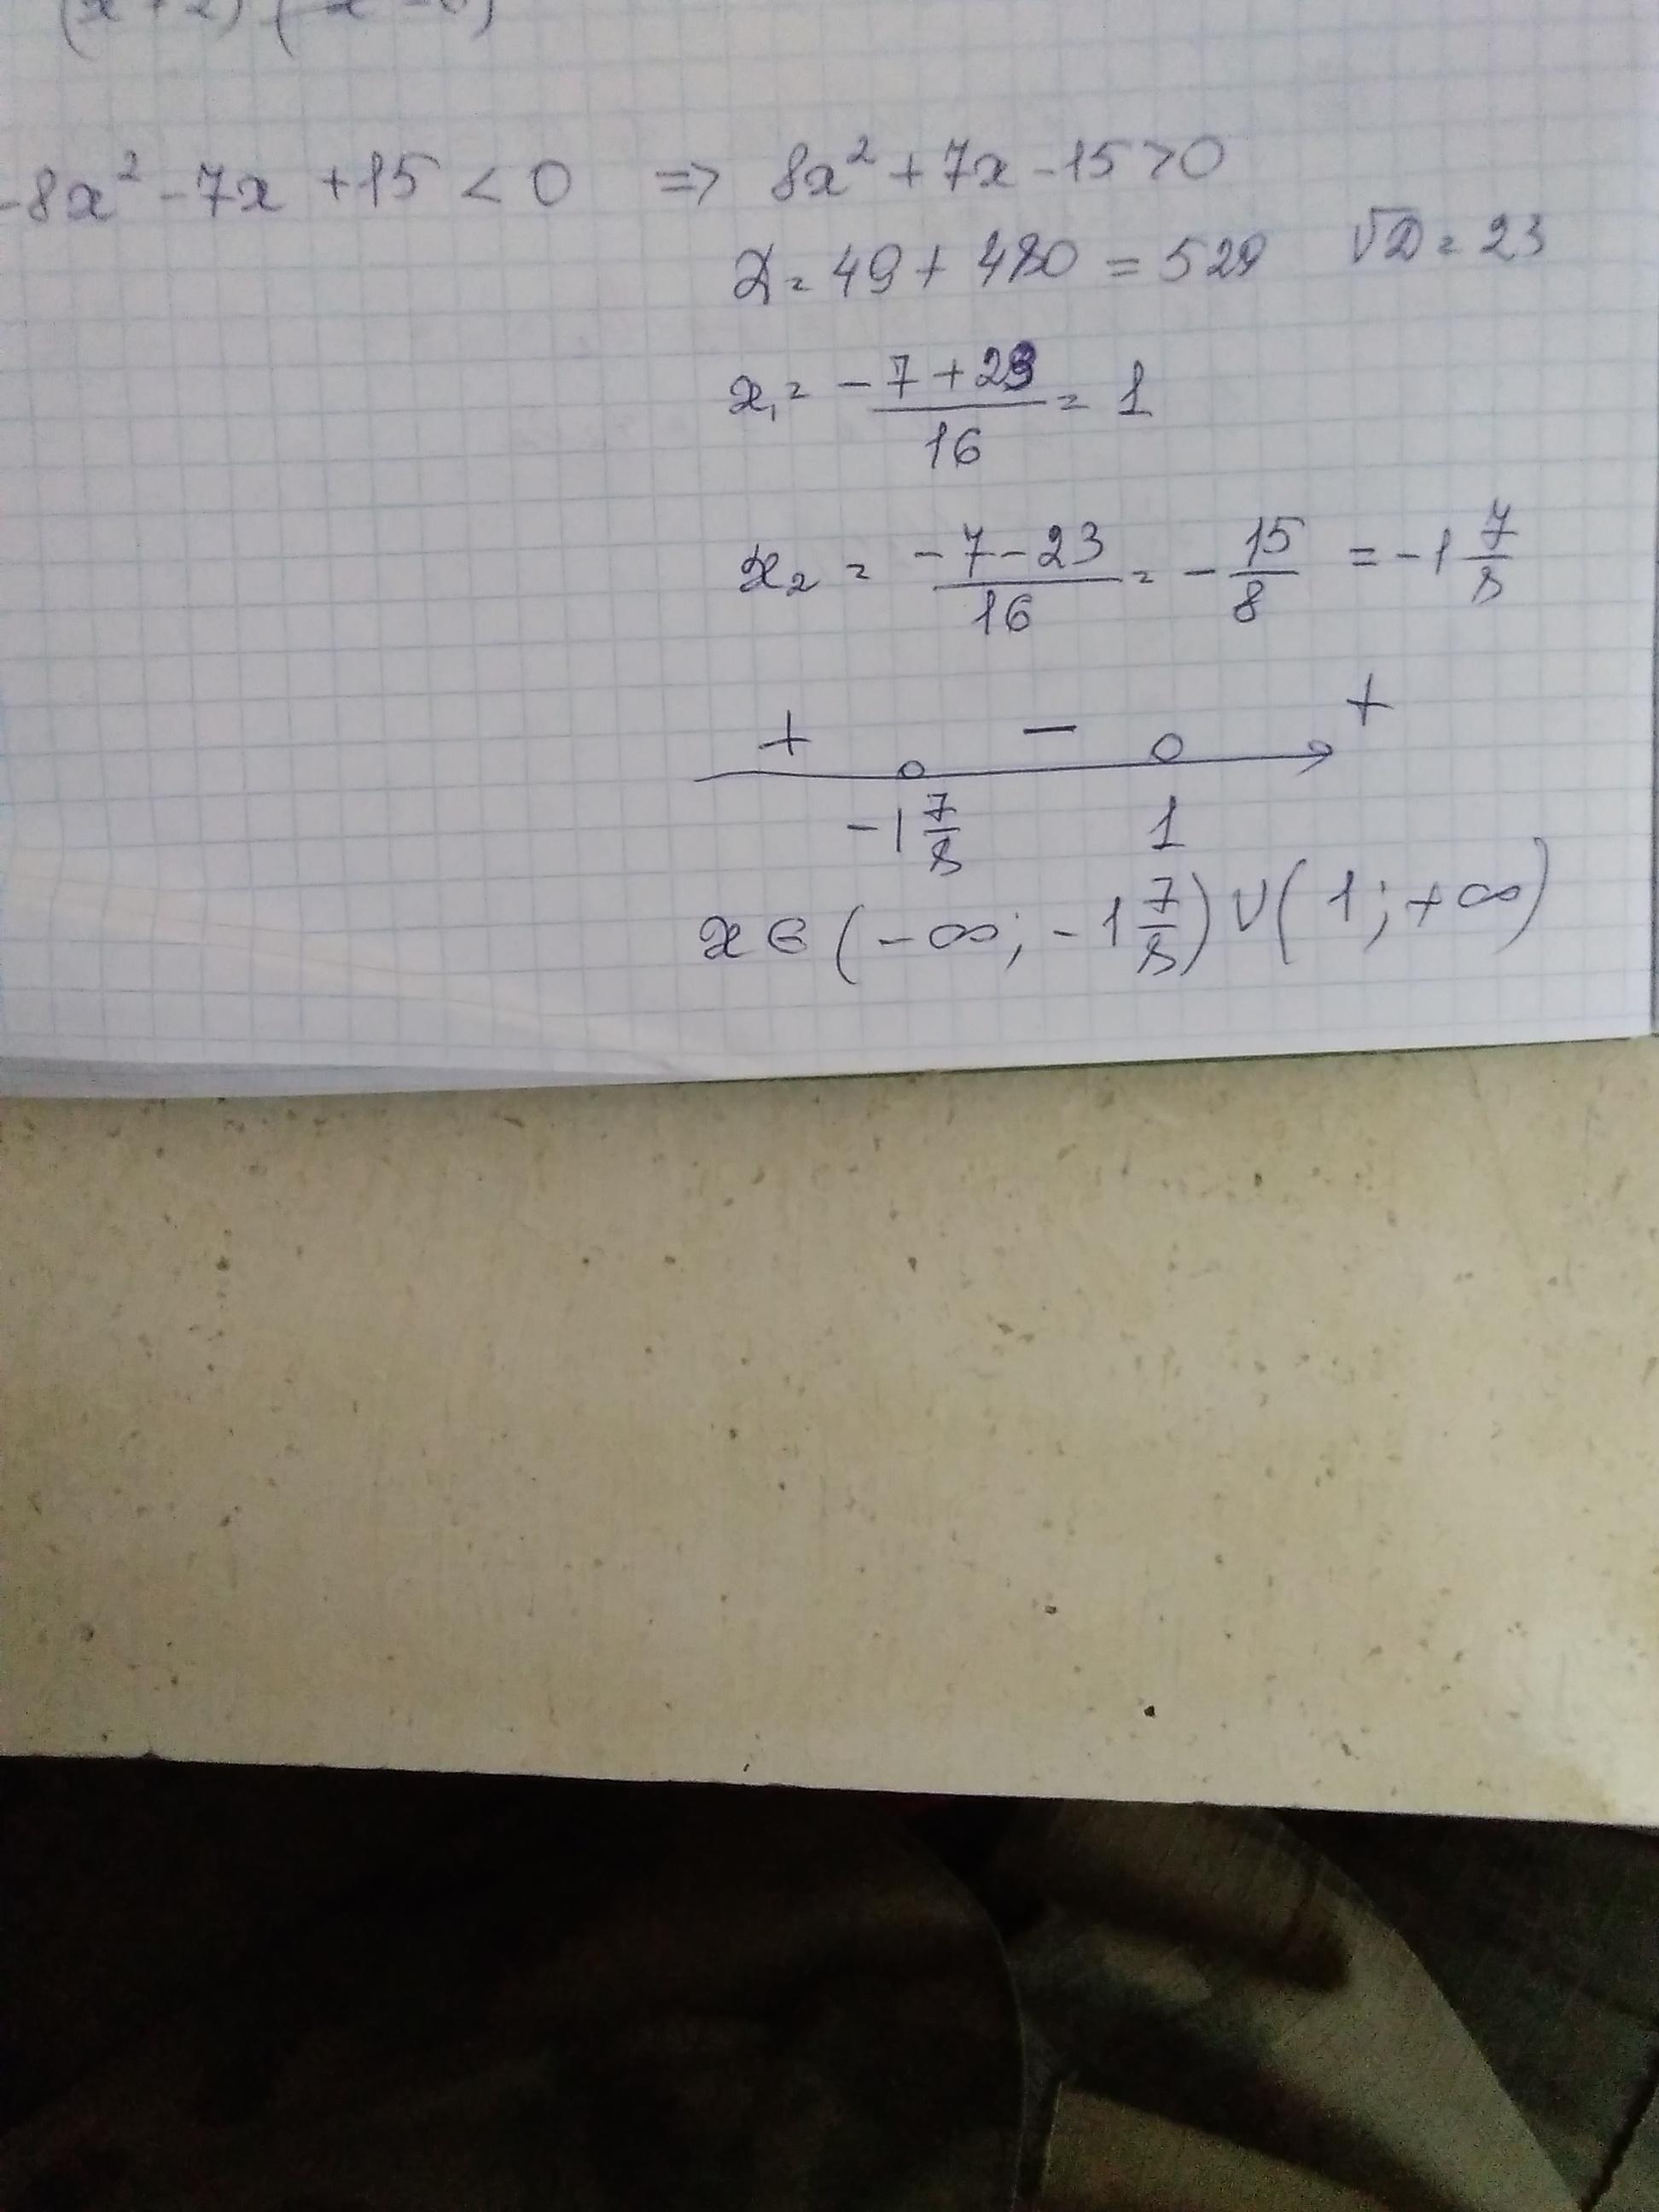 -8x² - 7x + 15 < 0 => 8x² + 7x - 15 > 0
D = 49 + 480 = 529 √D = 23
x₁ = (-7 + 23)/16 = 1
x₂ = (-7 - 23)/16 = - 15/8 = -1 7/8
+ - +
-1 7/8 1
x ∈ (-∞; -1 7/8) ∪ (1; +∞)